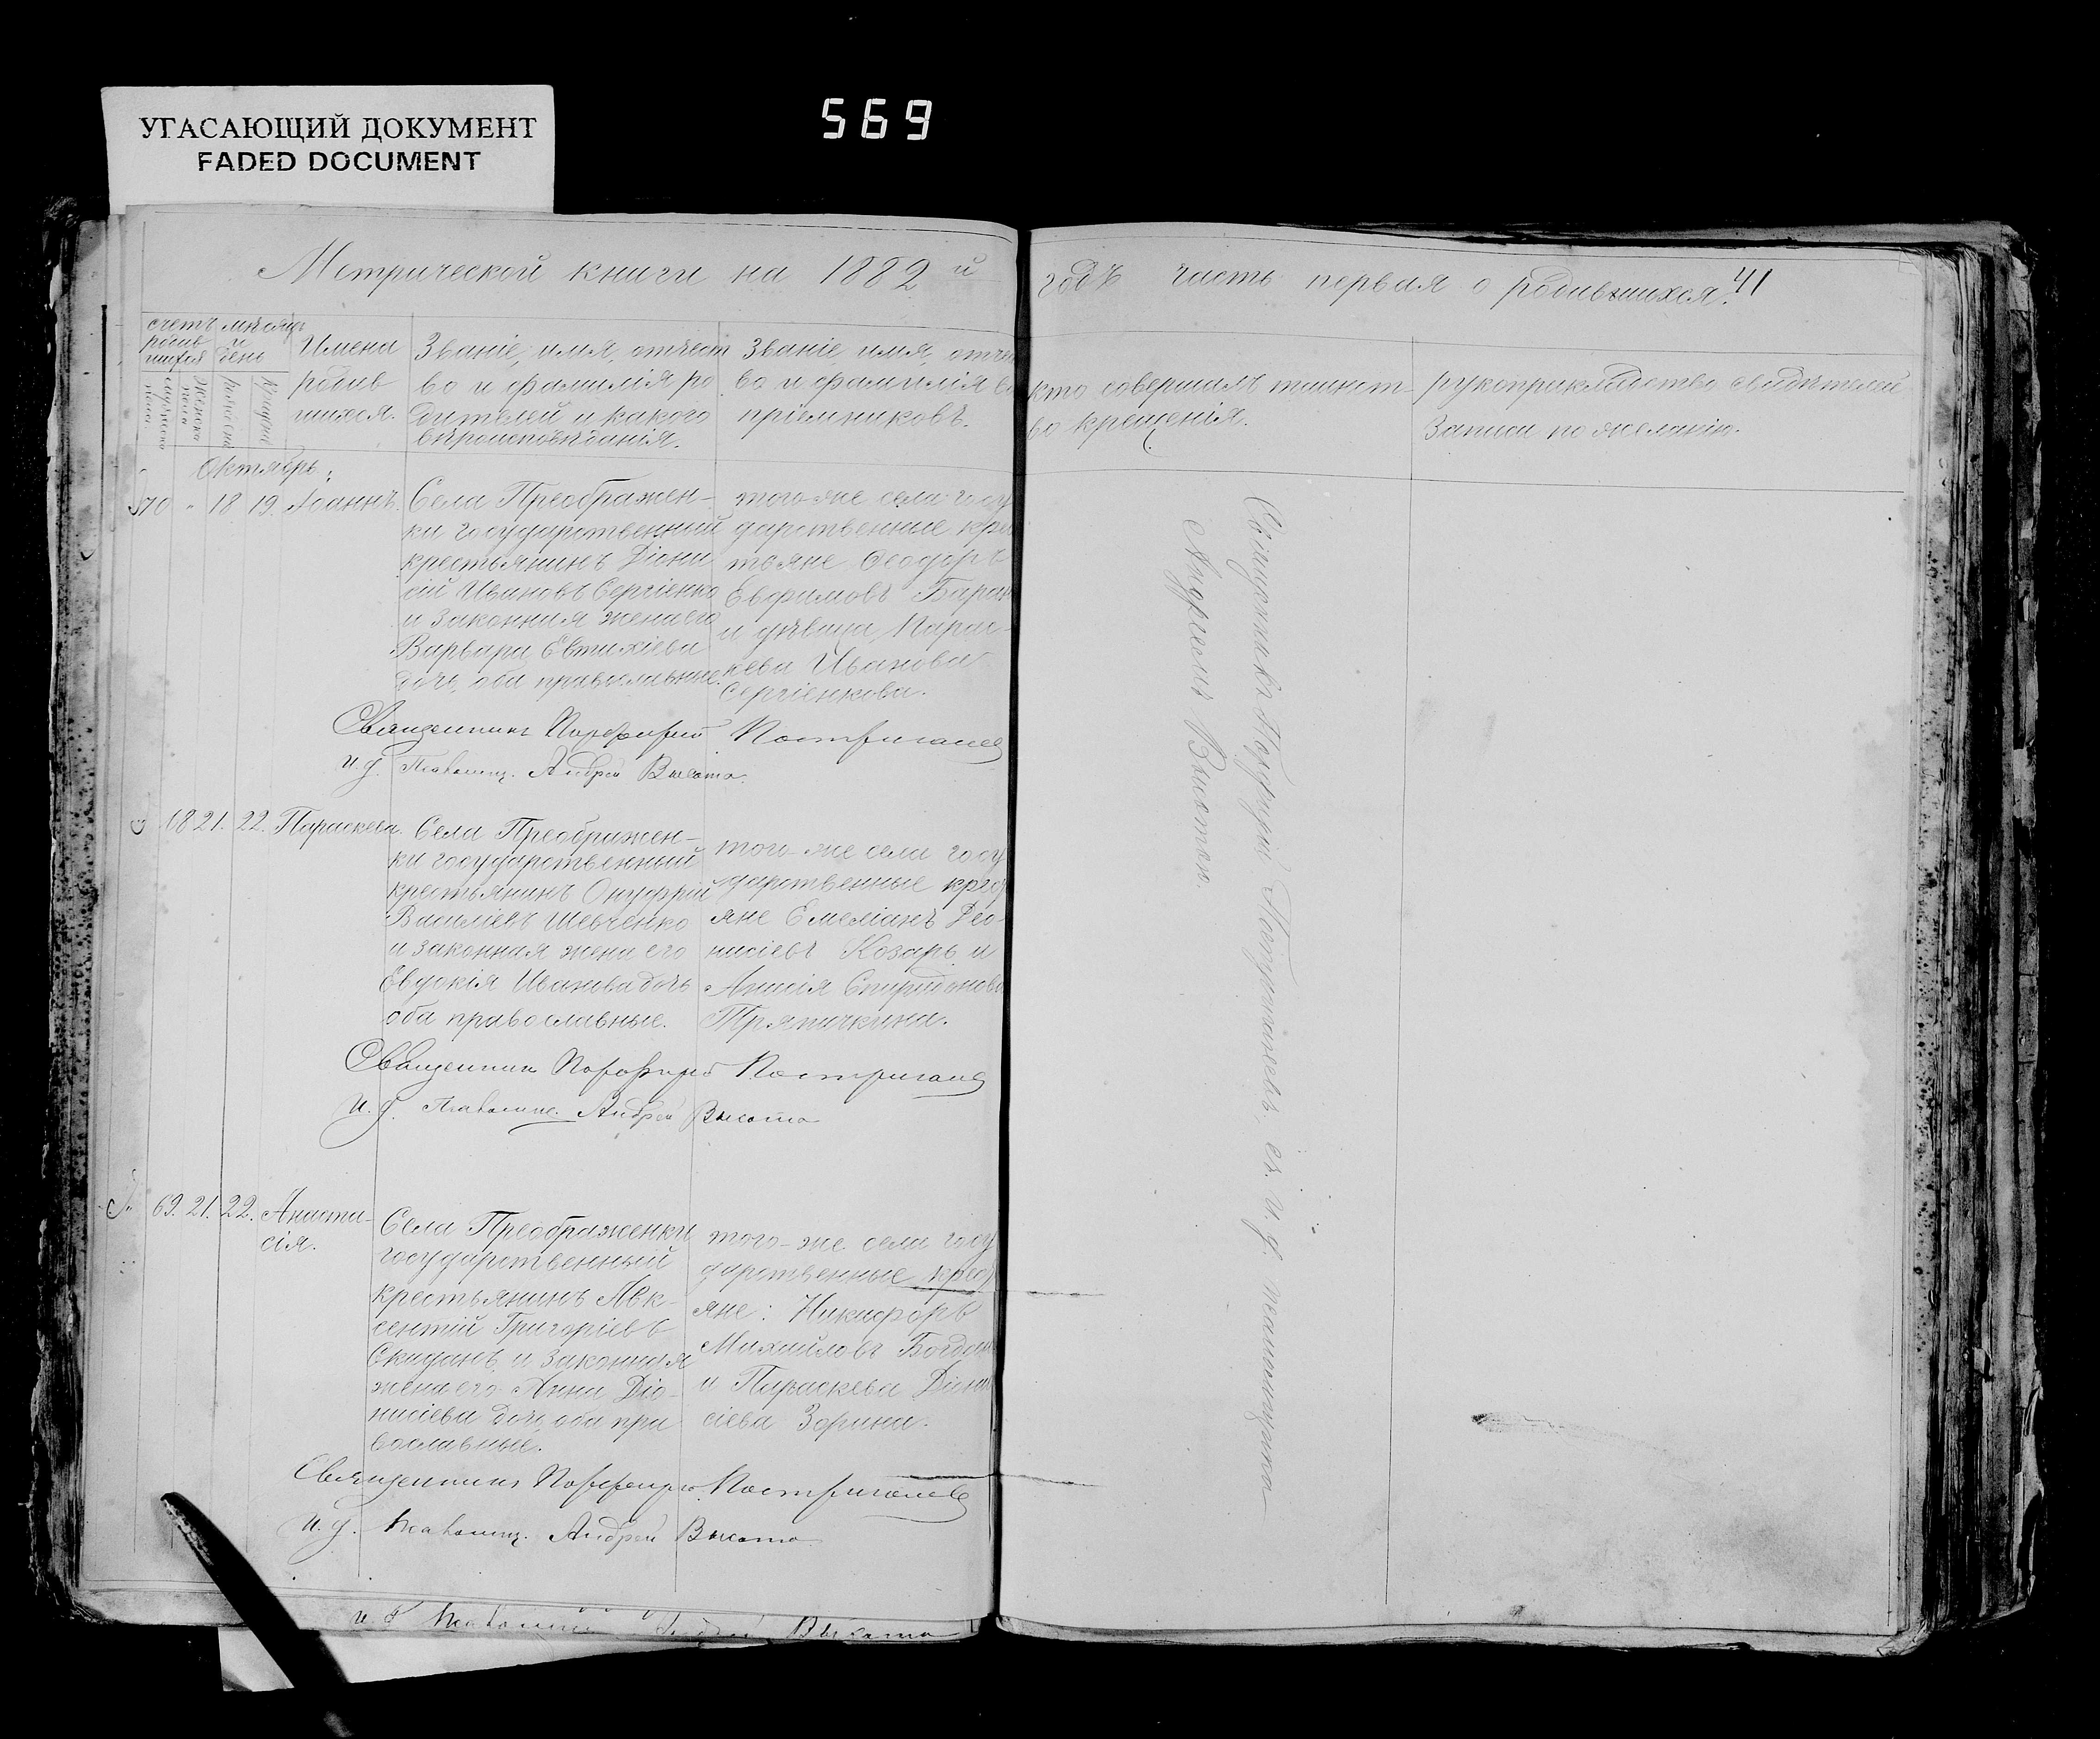 УГАСАЮЩИЙ ДОКУМЕНТ
FADED DOCUMENT
569
Метрической книги на 1882 й
годъ часть первая о родившихся. 41
счетъ родив шихся
мѣсяцъ и день
мужеска пола.
женска пола
рожденія
крещенія
Имена
родив
шихся.
Званіе, имя, отчест
во и фамилія ро
дителей и какого
вѣроисповѣданія.
Званіе имя, отче
во и фамилія во
пріемниковъ.
кто совершалъ таинст-
во крещенія.
рукоприкладство свидѣтелей
записи по желанію.
Октябрь:
70 " 18 19. Іоаннъ.
Села Преображен-
ки государственный
крестьянинъ Діони
сій Ивановъ Сергіенко
и законная жена его
Варвара Евтихіева
дочь, оба православные.
того-же села госу
дарственные кре
тьяне Ѳеодоръ
Евфимовъ Баран
и дѣвица Парас-
кева Иванова
Сергіенкова.
Священникъ Порфирій Постриганев
И. д. Псаломщ. Андрей Высота.
68 21. 22. Параскева.
Села Преображен-
ки государственный
крестьянинъ Онуфрій
Василіевъ Шевченко
и законная жена его
Евдокія Иванова дочь
оба православные.
того-же села госу
дарственные крест
яне Емеліанъ Део-
нисіевъ Козарь и
Анисія Спиридонова
Тряпичкина.
Священникъ Порфирій Постриганев
И. д. Псаломщ. Андрей Высота
69. 21. 22. Анаста-
сія.
Села Преображенки
государственный
крестьянинъ Авк-
сентій Григоріевъ
Скиданъ, и законная
жена его Анна Діо-
нисіева дочь, оба пра
вославные.
того-же села госу
дарственные крест
яне: Никифоръ
Михайловъ Богдан
и Параскева Діони
сіева Зорина.
Священникъ Порфирій Постриганев
И. д. Псаломщ. Андрей Высота
и. д Псаломщ Андрей Высота
Священникъ Порфирій Постриганевъ, съ и. д. псаломщика
Андреемъ Высотою.